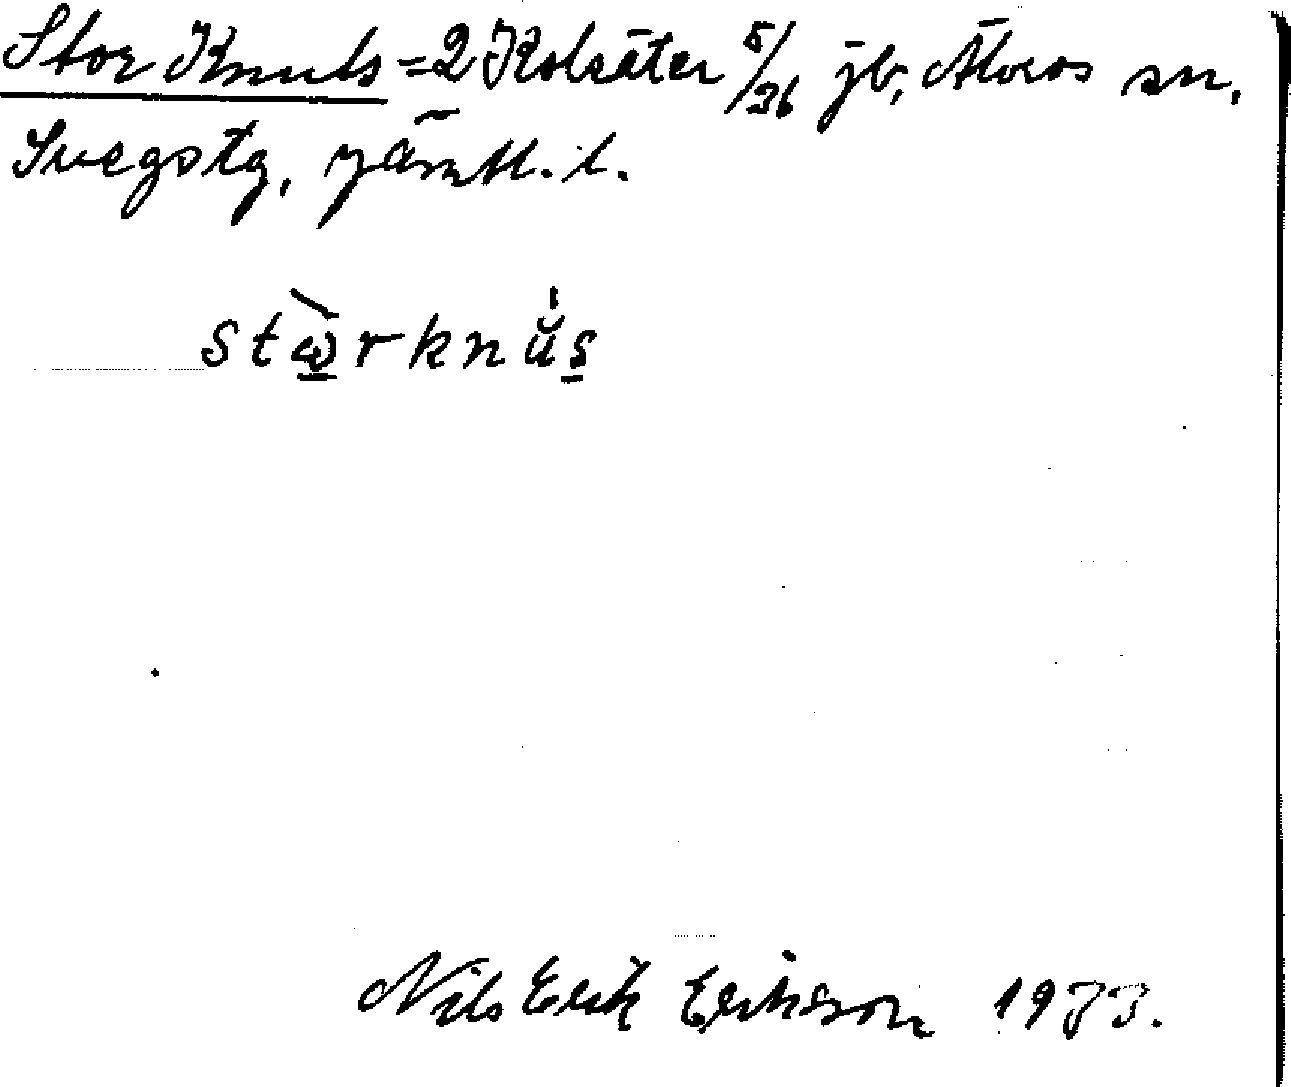 Stor Knuts = 2 Kolsäter 5/26 jb, Älvros sn,
Svegs tg, Jämtl. l.
stὼrknu̍s
Nils Erik Erikson 1973.